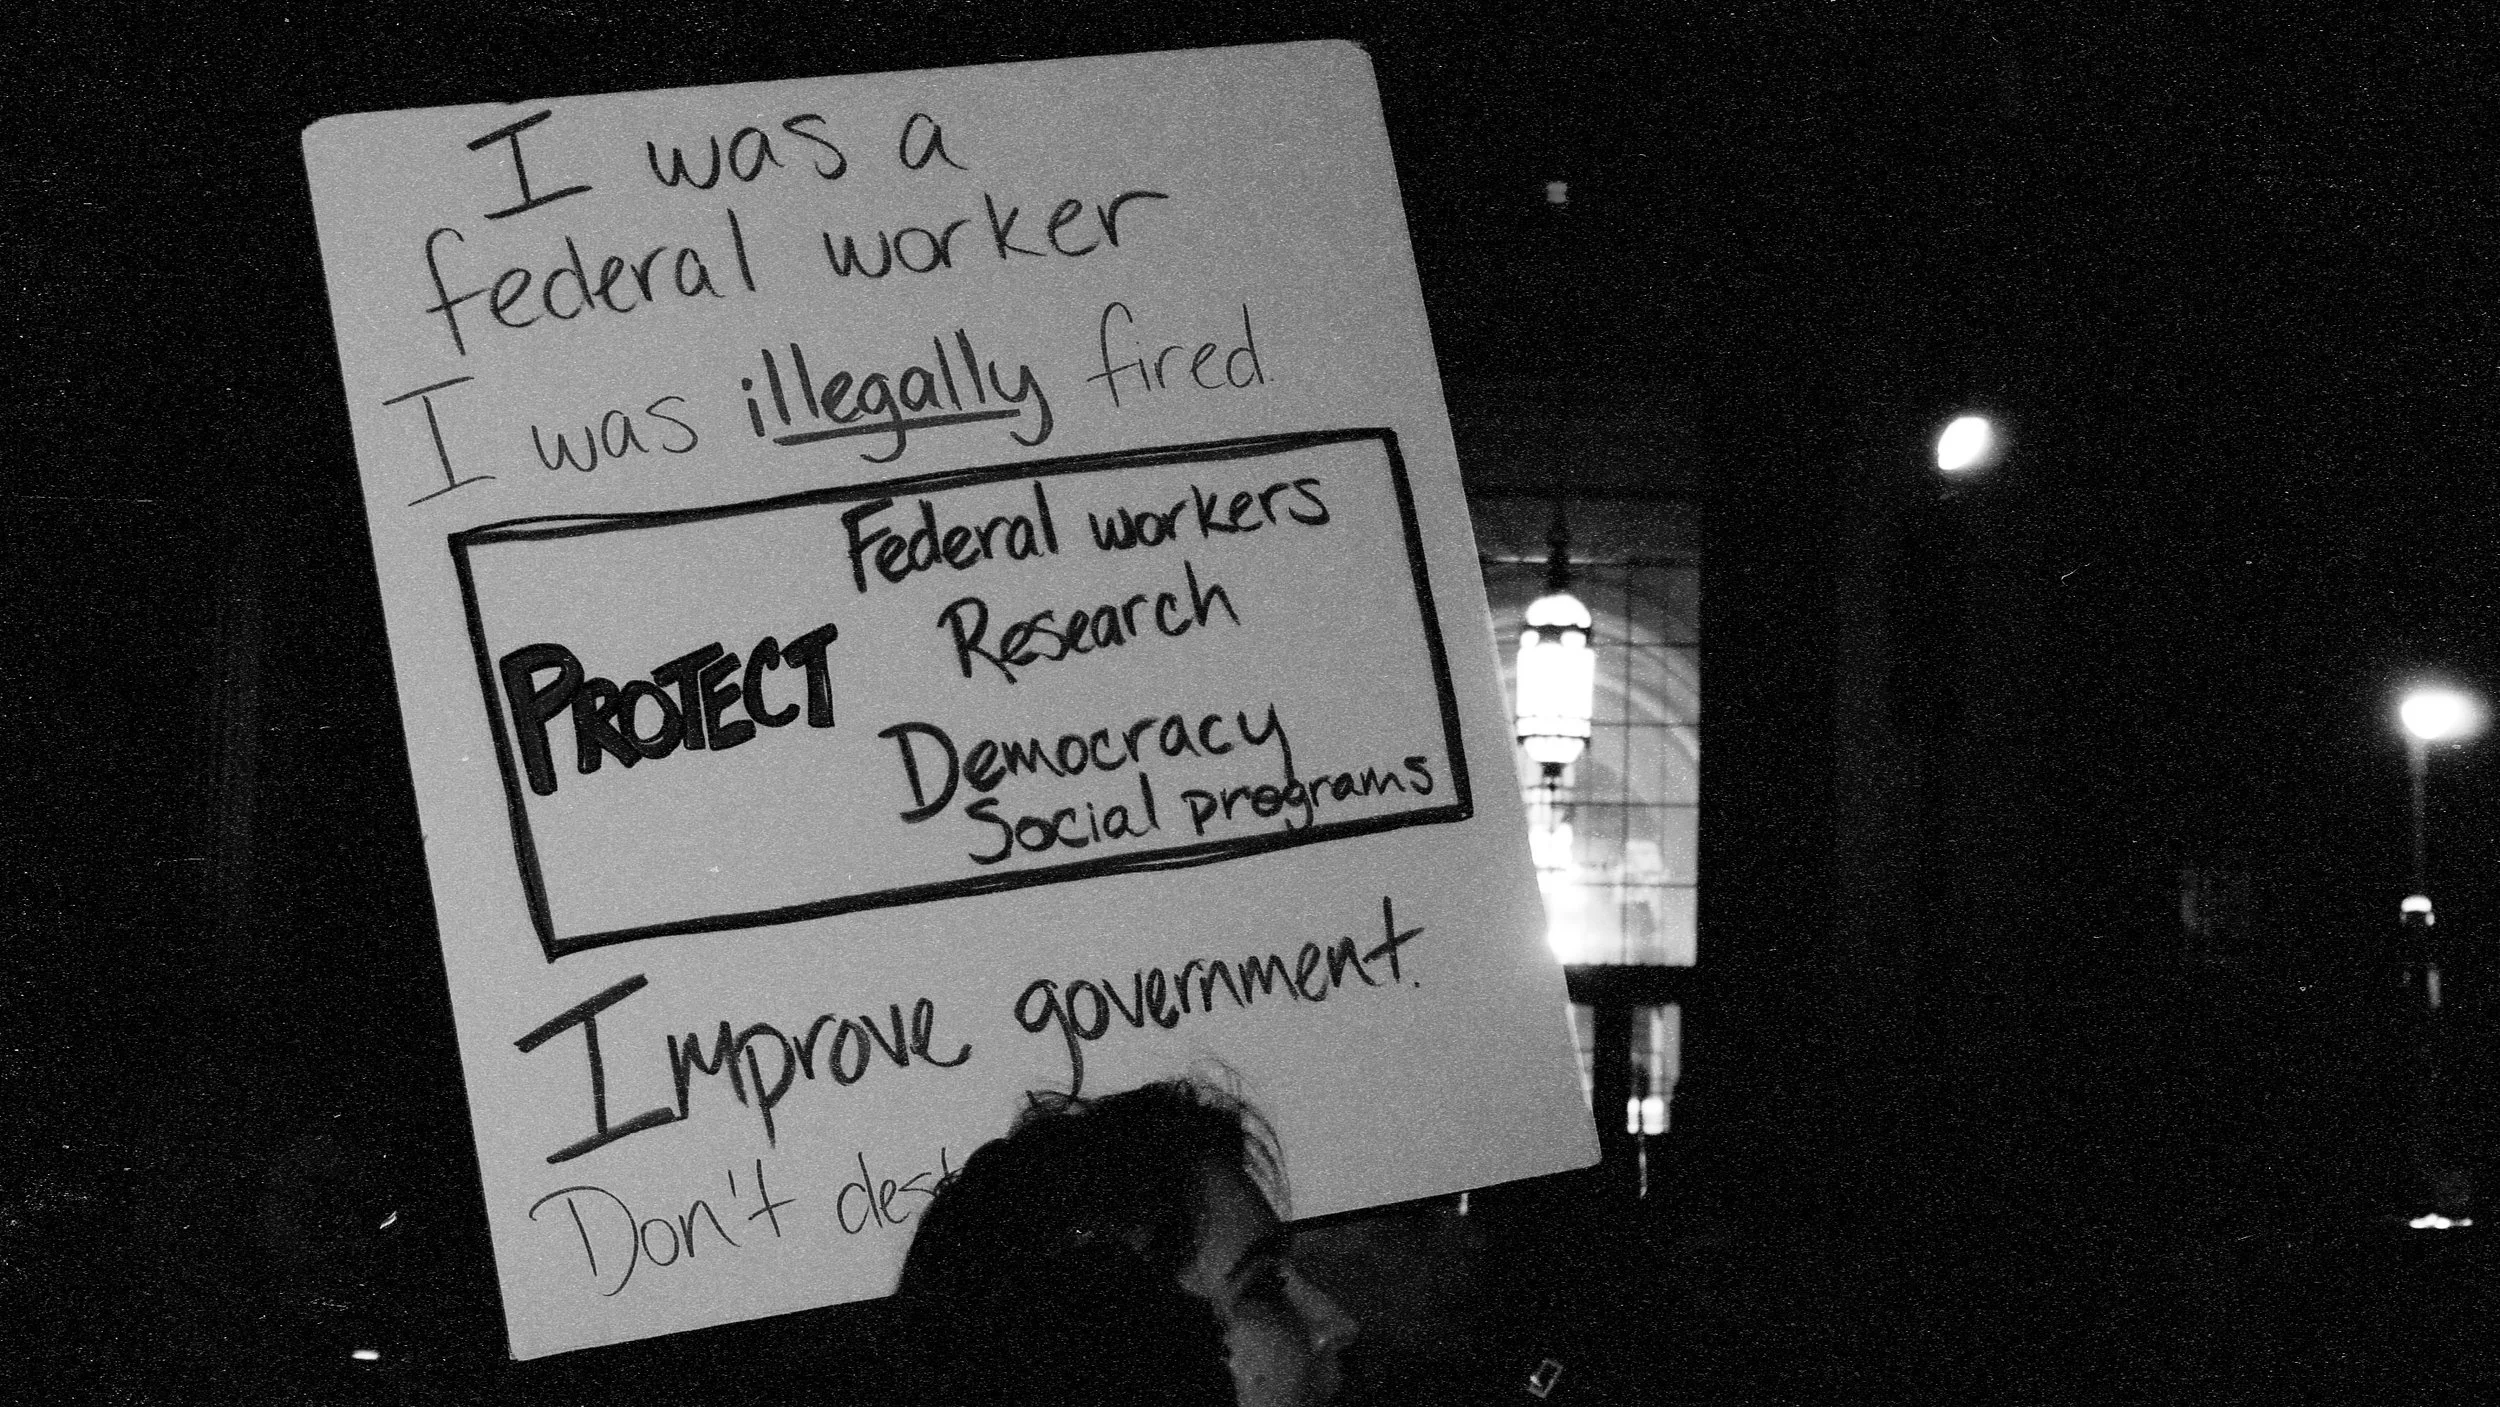 I was a
federal worker
I was illegally fired.
Federal workers
Research
PROTECT
Democracy
Social programs
Improve government.
Don't